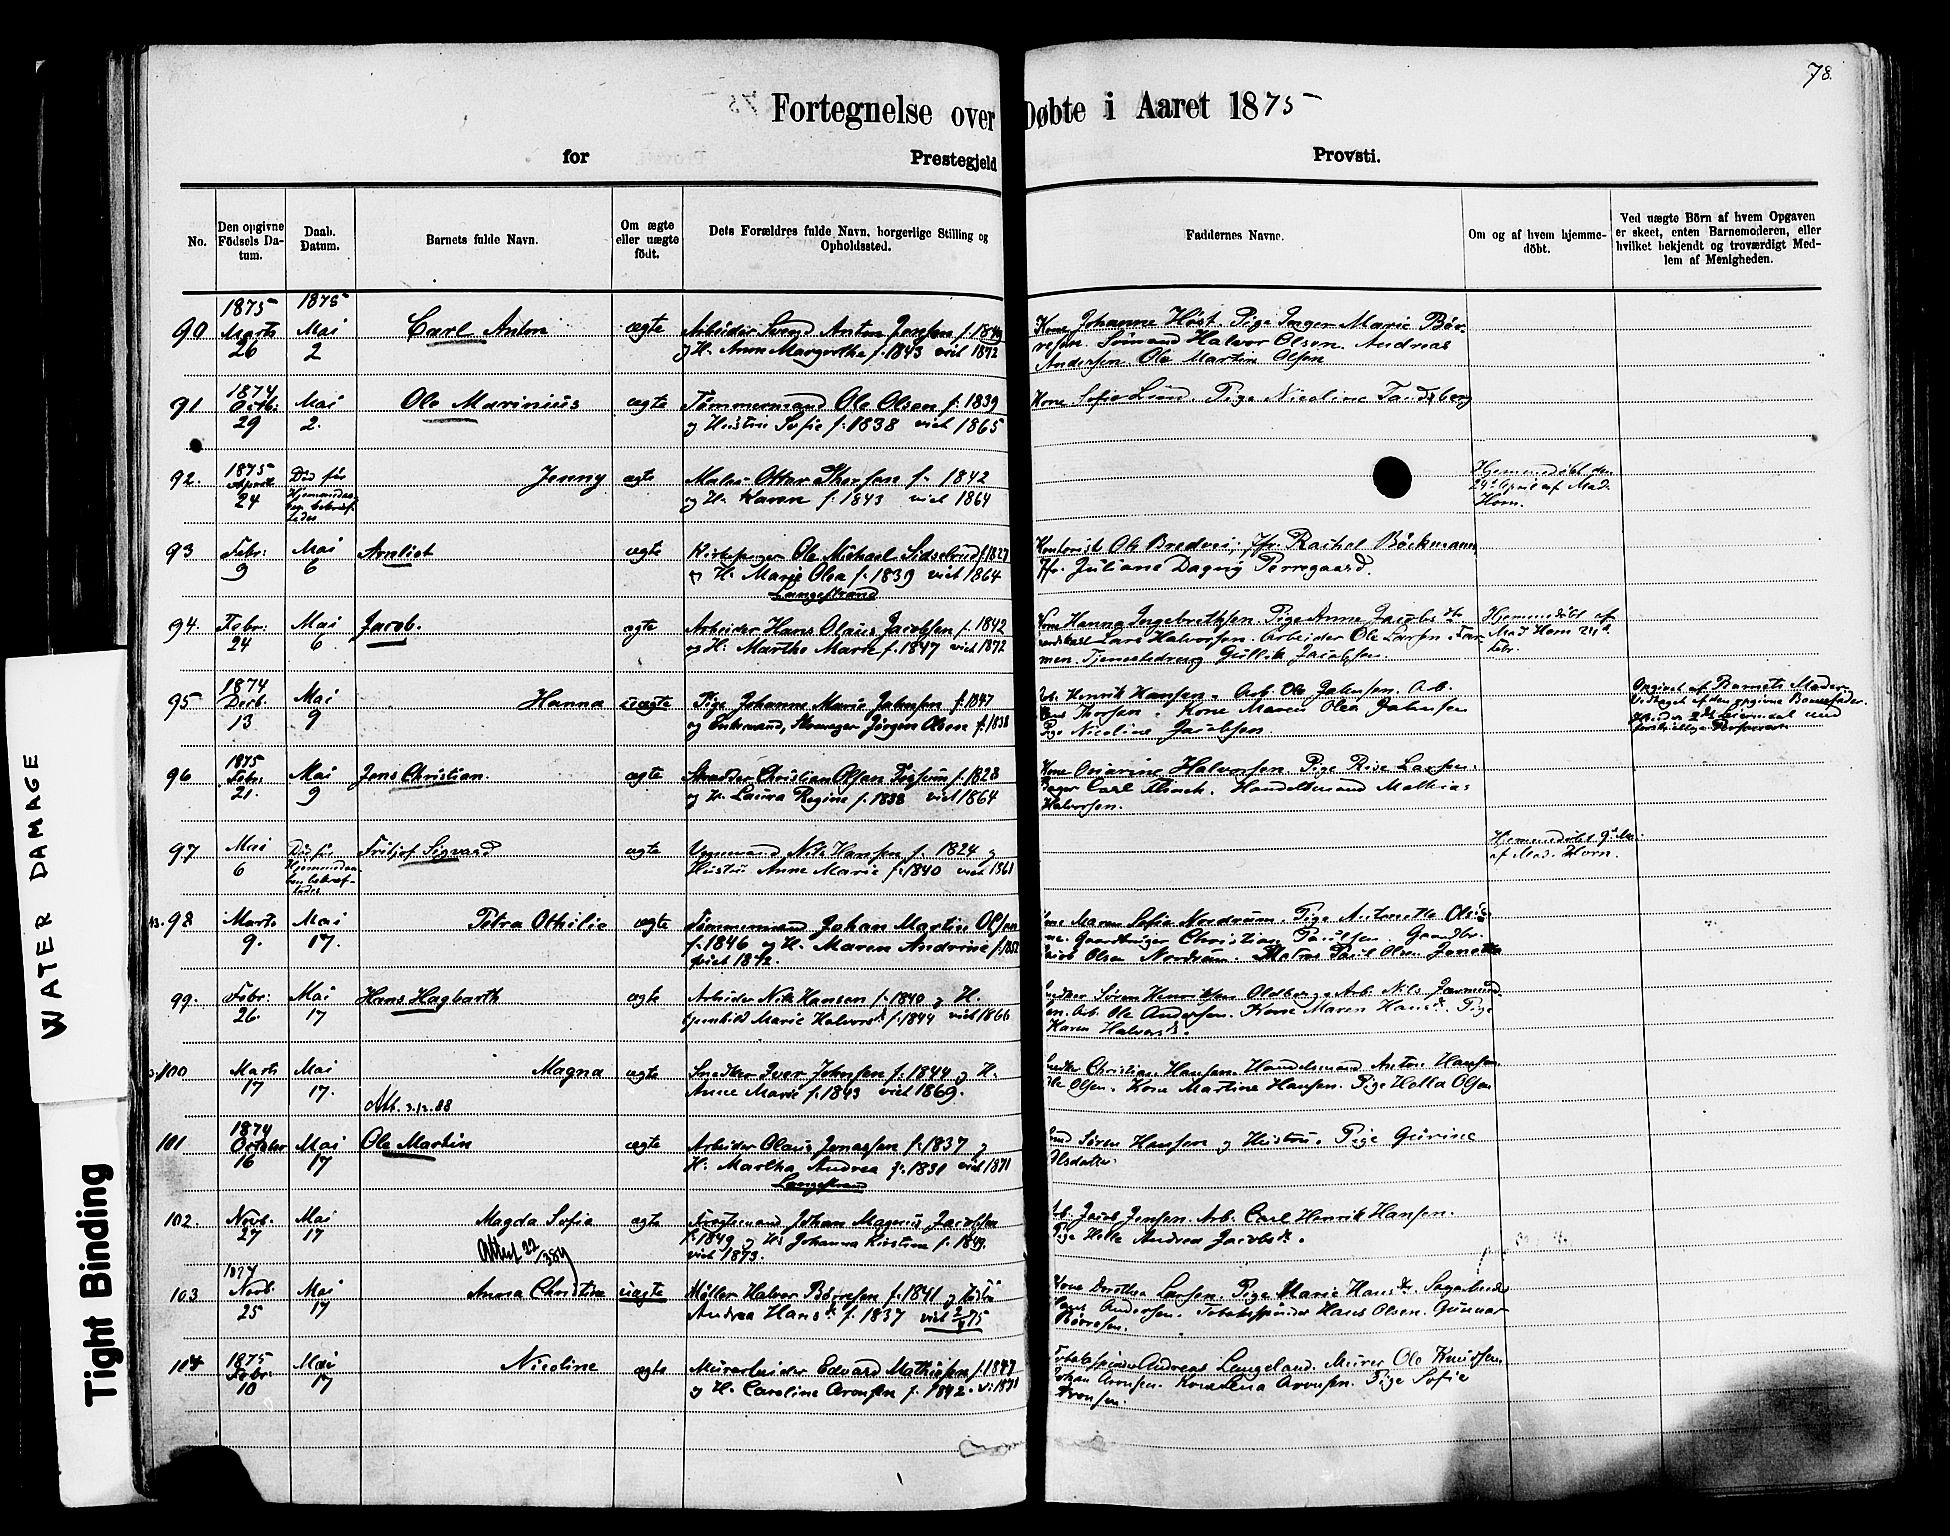 78.
Fortegnelse over Døbte i Aaret 1875
for Prestegjeld Provsti.
No.
Den opgivne Födsels Datum.
Daab. Datum.
Barnets fulde Navn.
Om ægte eller uægte födt.
Dets Forældres fulde Navn, borgerlige Stilling og Opholdssted.
Faddernes Navne.
Om og af hvem hjemmedöbt.
Ved uægte Börn af hvem Opgaven er skeet, enten Barnemoderen, eller hvilket bekjendt og troværdigt Medlem af Menigheden.
90 1875 Marts 26 1875 Mai 2 Carl Anton ægte Arbeider Svend Anton Jensen f. 1849
og H. Anne Margrethe f. 1843 viet 1872
Kone Johanne Höst. Pige Inger Marie Bör-
resen. Sömand Halvor Olsen. Andreas
Andersen. Ole Martin Olsen
91 1874 Octb: 29 Mai 2. Ole Marinius ægte Tømmermand Ole Olsen f. 1839
og Hustru Sofie f. 1838 viet 1865
Kone Sofie Lund. Pige Nicoline
92. 1875 April 24 Död før Hjemmedaaben bekræftedes Jenny ægte Maler Ottar Thorsen f. 1842
og H. Karen f. 1843 viet 1864
Hjemmedöbt den
29d April af Mad.
Horn.
93 Febr: 9 Mai 6 ægte Kirkesanger Ole Michael f. 1827
og H. Marie Olea f. 1839 viet 1864
Langestrand
Kontorist Ole Bredvei; Jfr. Rachel Böckmann
Jfr. Juliane Dagny
94. Febr: 24 Mai 6 Jacob. ægte Arbeider Hans Olaus Jacobsen f. 1842
og H: Marthe Marie f. 1847 viet 1872
Kone Hanna Ingebrethsen. Pige Anne Jacobsdr
Lars Halvorsen. Arbeider Ole Larsen.
Tjenestedreng Gullik Jacobsen.
Hjemmedöbt af
Mad Horn 24d
Febr.
95 1874 Decb. 13 Mai 9 Hanna uægte Pige Johanne Marie Jahnsen f. 1847
og Enkemand, Jörgen Olsen f. 1838
Arb. Henrik Hansen. Arb. Ole Jahnsen. Arb.
Thorsen. Kone Maren Olea Jahnsen
Pige Nicoline Jacobsen
Opgivet af Barnets Moder
Vedtaget af den opgivne Barnefader.
96 1875 Febr: 21. Mai 9 Jens Christian. ægte Skrædder Christian Olsen Fossum f. 1828
og H. Laura Regine f. 1838 viet 1864
Halvorsen. Pige Rise Larsen.
Bager Carl Flinch. Handelsmand Mathias
Halvorsen.
97 Mai 6 Död før Hjemmedaaben bekræftedes Fritjof Sigvard ægte Vognmand Nils Hansen f. 1824 og
Hustru Anne Marie f. 1840 viet 1861
Hjemmedöbt 9d Mai
af Mad. Horn.
98 Marts 9. Mai 17. Petra Othilie ægte Tömmermand Johan Martin Olsen
f. 1846 og H. Maren Andrine f. 1852
viet 1872.
Kone Maren Sofie Nordrum. Pige Antonette
Gaardbruger Christian Paulsen. Gaardbr.
Olsen Nordrum. Matros Paul Olsen
99. Febr: 26. Mai 17 Hans Hagbarth ægte Arbeider Nils Hansen f. 1840 og H.
Gunhild Marie Halvorsdr f. 1844 viet 1866
Snedker Sören Henriksen Oldberg. Arb. Nils
Arb. Ole Andersen. Kone Maren Hansdr. Pige
Karen Halvorsdr.
100 Marts 17 Mai 17. Magna ægte Snedker Iver Johnsen f. 1844 og H.
Anne Marie f. 1843 viet 1869.
Snedker Christian Hansen. Handelsmand Anton Hansen
Ole Olsen. Kone Martine Hansen. Pige Helle Olsen
Att. 3.12.88
101 1874 October 16 Mai 17 Ole Martin ægte Arbeider Olaus Jonassen f. 1837 og
H: Martha Andrea f. 1831 viet 1871
Langestrand
Sören Hansen og Hustru. Pige Gurine
Olsdatter.
102. Novb. 27 Mai 17 Magda Sofie ægte Johan Magnus Jacobsen
f. 1849 og H: Johanna Kirstine f. 1849.
viet 1873.
Arb. Jacob Jensen. Arb. Carl Henrik Hansen.
Pige Helle Andrea Jacobsdr.
Attest 22/
103 1874 Novb. 25 Mai 17 Anna Christine uægte Möller Halvor Börresen f. 1841 og Hustru
Andrea Hansdr. f. 1837 viet 75
Kone Dorothea Larsen. Pige Marie Hansdr.
Andersen. Tobakspinder Hans Olsen. Gunnar
Börresen.
104 1875 Febr: 10 Mai 17 Nicoline ægte Murarbeider Edvard Mathisen f. 1847
og H. Caroline Aronsen f. 1842. v: 1871
Tobakspinder Andreas Langeland. Murer Ole Knudsen
Johan Aronsen. Kone Lena Aronsen. Pige Sofie
Aronsen.
WATER DAMAGE
Tight Binding